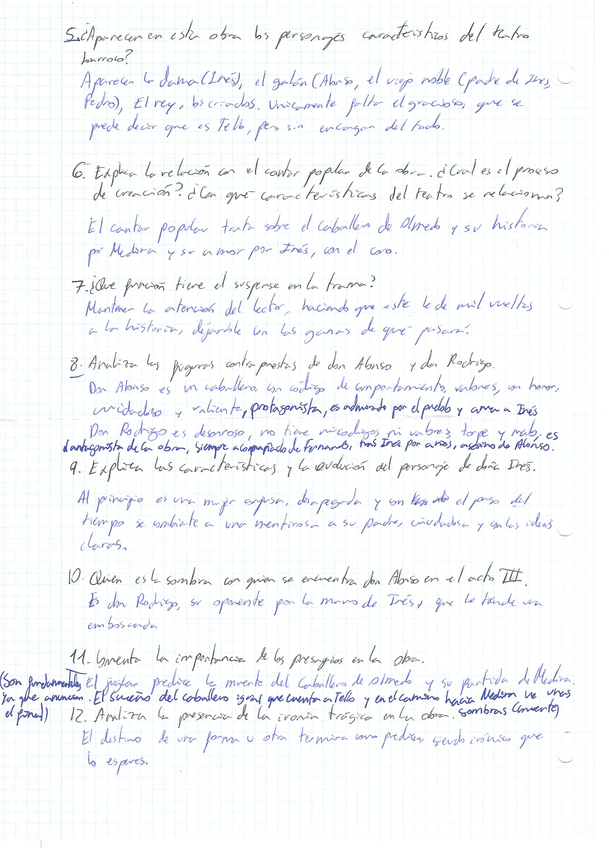 5. ¿Aparecen en esta obra los personajes característicos del teatro
barroco?
Aparecen la dama (Inés), el galán (Alonso, el viejo noble (padre de Inés,
Pedro), El rey, los criados. Unicamente falta el gracioso, que se
puede decir que es Tello, pero sin encargan del todo.
6. Explica la relación con el cantar popular de la obra. ¿Cual es el proceso
de creación? ¿Con qué características del teatro se relacionan?
El cantar popular trata sobre el caballero de Olmedo y su historia
por Medina y su amor por Inés, con el coro.
7. ¿Que función tiene el suspense en la trama?
Mantener la atención del lector, haciendo que este le de mil vueltas
a la historia, dejandole con las ganas de qué pasará.
8. Analiza las figuras contrapuestas de don Alonso y don Rodrigo.
Don Alonso es un caballero, con código de comportamiento, valores, con honor,
cuidadoso y valiente, protagonista, es admirado por el pueblo y ama a Inés
Don Rodrigo es , no tiene ni codigos ni valores, torpe y malo, es
el antagonista de la obra, siempre acompañado de Fernando, tras Inés por años, asesino de Alonso.
9. Explica las características y la evolución del personaje de doña Inés.
Al principio es una mujer confusa, desapegada y con el paso del
tiempo se cambiate a una mentirosa a su padre, cuidadosa y con las ideas
claras.
10. Quien es la sombra con quien se encuentra don Alonso en el acto III.
Es don Rodrigo, su oponente por la mano de Inés, que le tiende una
emboscada
11. Comenta la importancia de los presagios en la obra.
(Son fundamentales
ya que anuncian
el final)
El juglar predice la muerte del Caballero de Olmedo y su partida de Medina.
El sueño del caballero igual que cuenta a Tello y en el camino hacia Medina ve unas
sombras (muerte)
12. Analiza la presencia de la ironía trágica en la obra.
El destino de una forma u otra termina como predicen siendo irónico que
lo esperes.